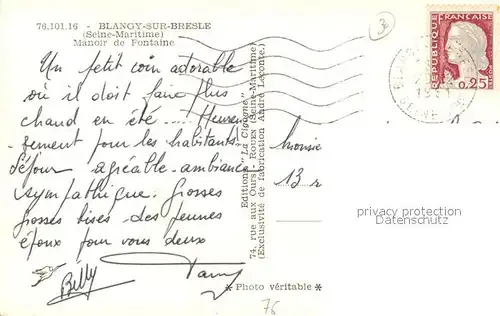 76.101.16 - BLANGY-SUR-BRESLE
(Seine-Maritime)
Manoir de Fontaine
3
RÉPUBLIQUE
FRANÇAISE
0,25
Un petit coin adorable
où il doit faire plus
chaud en été .... Heureu
sement pour les habitants.
Séjour agréable - ambiance
sympathique. Grosses
grosses bises des jeunes
époux pour vous deux
Editions "La Cigogne"
74, rue aux Ours - ROUEN (Seine-Maritime)
(Exclusivité de fabrication André Leconte.)
13 r
privacy protection
* Photo véritable *
76